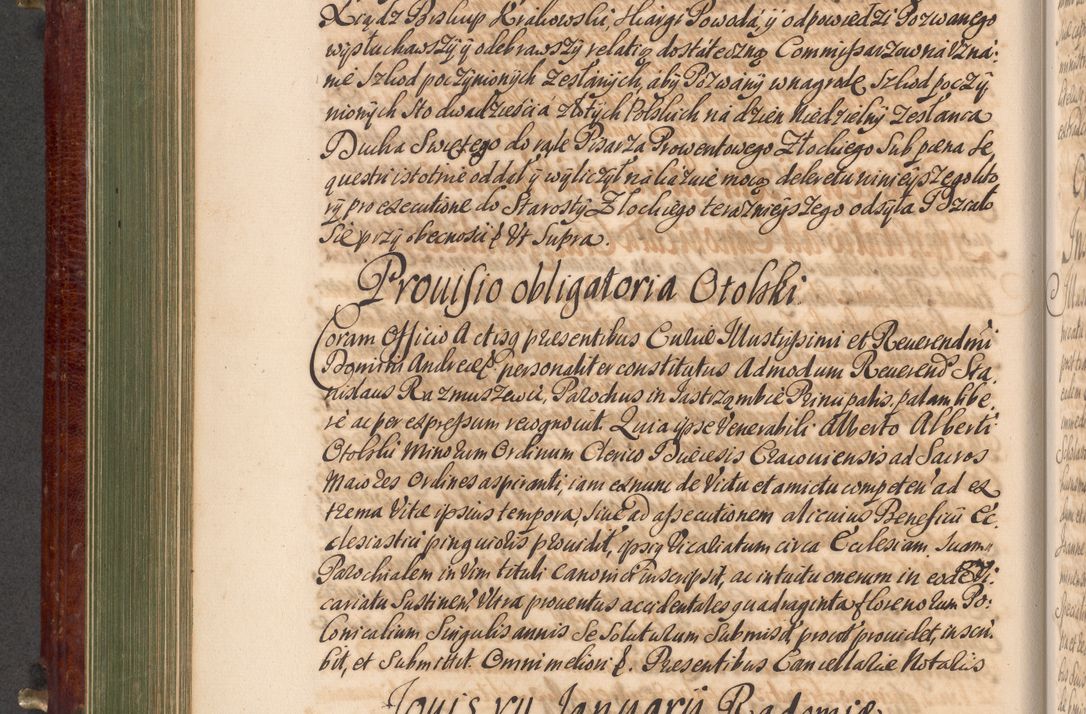 Xiądz Biskup Krakowski, Skargi Powoda, ÿ odpowiedzi Pozwanego
wysłuchawszÿ ÿ odebrawszÿ relatią dostateczną Commissarzow na Uzna:
nie Szkod poczÿnionÿch Zesłanÿch, abÿ Pozwanÿ w nagrodę Szkod poczÿ
nionÿch Sto dwadziescia złotÿch Polskich na dzien Niedzielnÿ Zesłania
Ducha Swiętego do rąk Pisarza Prowentowego Złockiego Sub pæna Se
questri istotnie oddał ÿ wÿliczÿł nakazuie mocą dekretu ninieÿszego kto
rÿ pro executione do Starostÿ Złockiego terażnieÿszego odsÿła Działo
Się przÿ obecnosci &. Ut Supra.
Prouisio obligatoria Otolski.
Coram Officio Actisq præsentibus Curiæ Illustrissimi et Reuerendmi
Domini Andreæ &. personaliter constitutus Admodum Reuerend Sta,
nislaus Razmuszewic, Parochus in Jastrząmbie Principalis, palam libe,
rè ac per expressum recognouit. Quia ipse Venerabili Alberto Alberti
Otolski Minorum Ordinum Clerico Diæcesis Cracouiensis ad Sacros
Maiores Ordines aspiranti, iam ex nunc de Victu et amictu competen ad ex
trema Vitæ ipsius tempora, Siue ad assecutionem alicuius Beneficii Ec,
clesiastici pinguioris prouidit, ipsiq Vicariatum circa Ecclesiam Suam
Parochialem in Vim tituli Canonici inscripsit, ac intuitu onerum in eod Vi:
cariatu Sustinen. Ultra prouentus accidentales quadraginta florenorum Po:
lonicalium Singulis annis Se Soluturum Submisit, prout prouidet, inscri
bit, et Submittit. Omni meliori &. Præsentibus Cancellariæ Notariis
Jouis XVII Januarÿ Radomiæ